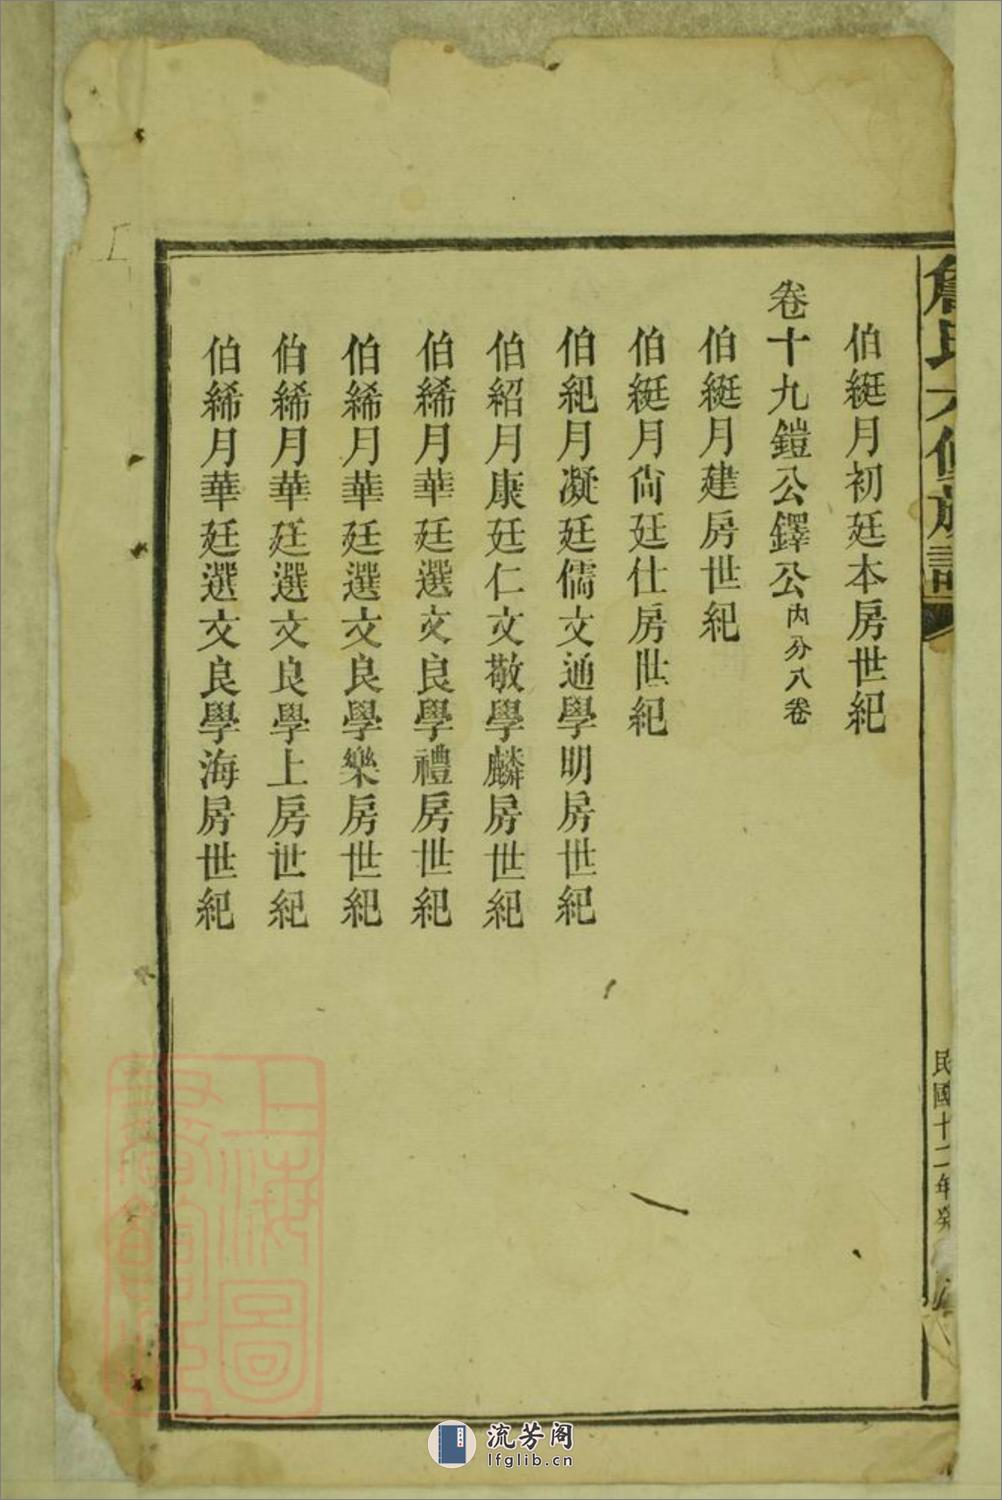 詹氏六修族譜
民國十二年癸
伯綎月初廷本房世紀
卷十九鎧公鐸公內分八卷
伯綎月建房世紀
伯綎月尚廷仕房世紀
伯紀月凝廷儒文通學明房世紀
伯紹月康廷仁文敬學麟房世紀
伯絺月華廷選文良學禮房世紀
伯絺月華廷選文良學樂房世紀
伯絺月華廷選文良學上房世紀
伯絺月華廷選文良學海房世紀
上海圖
書館藏
流芳阁
lfglib.cn